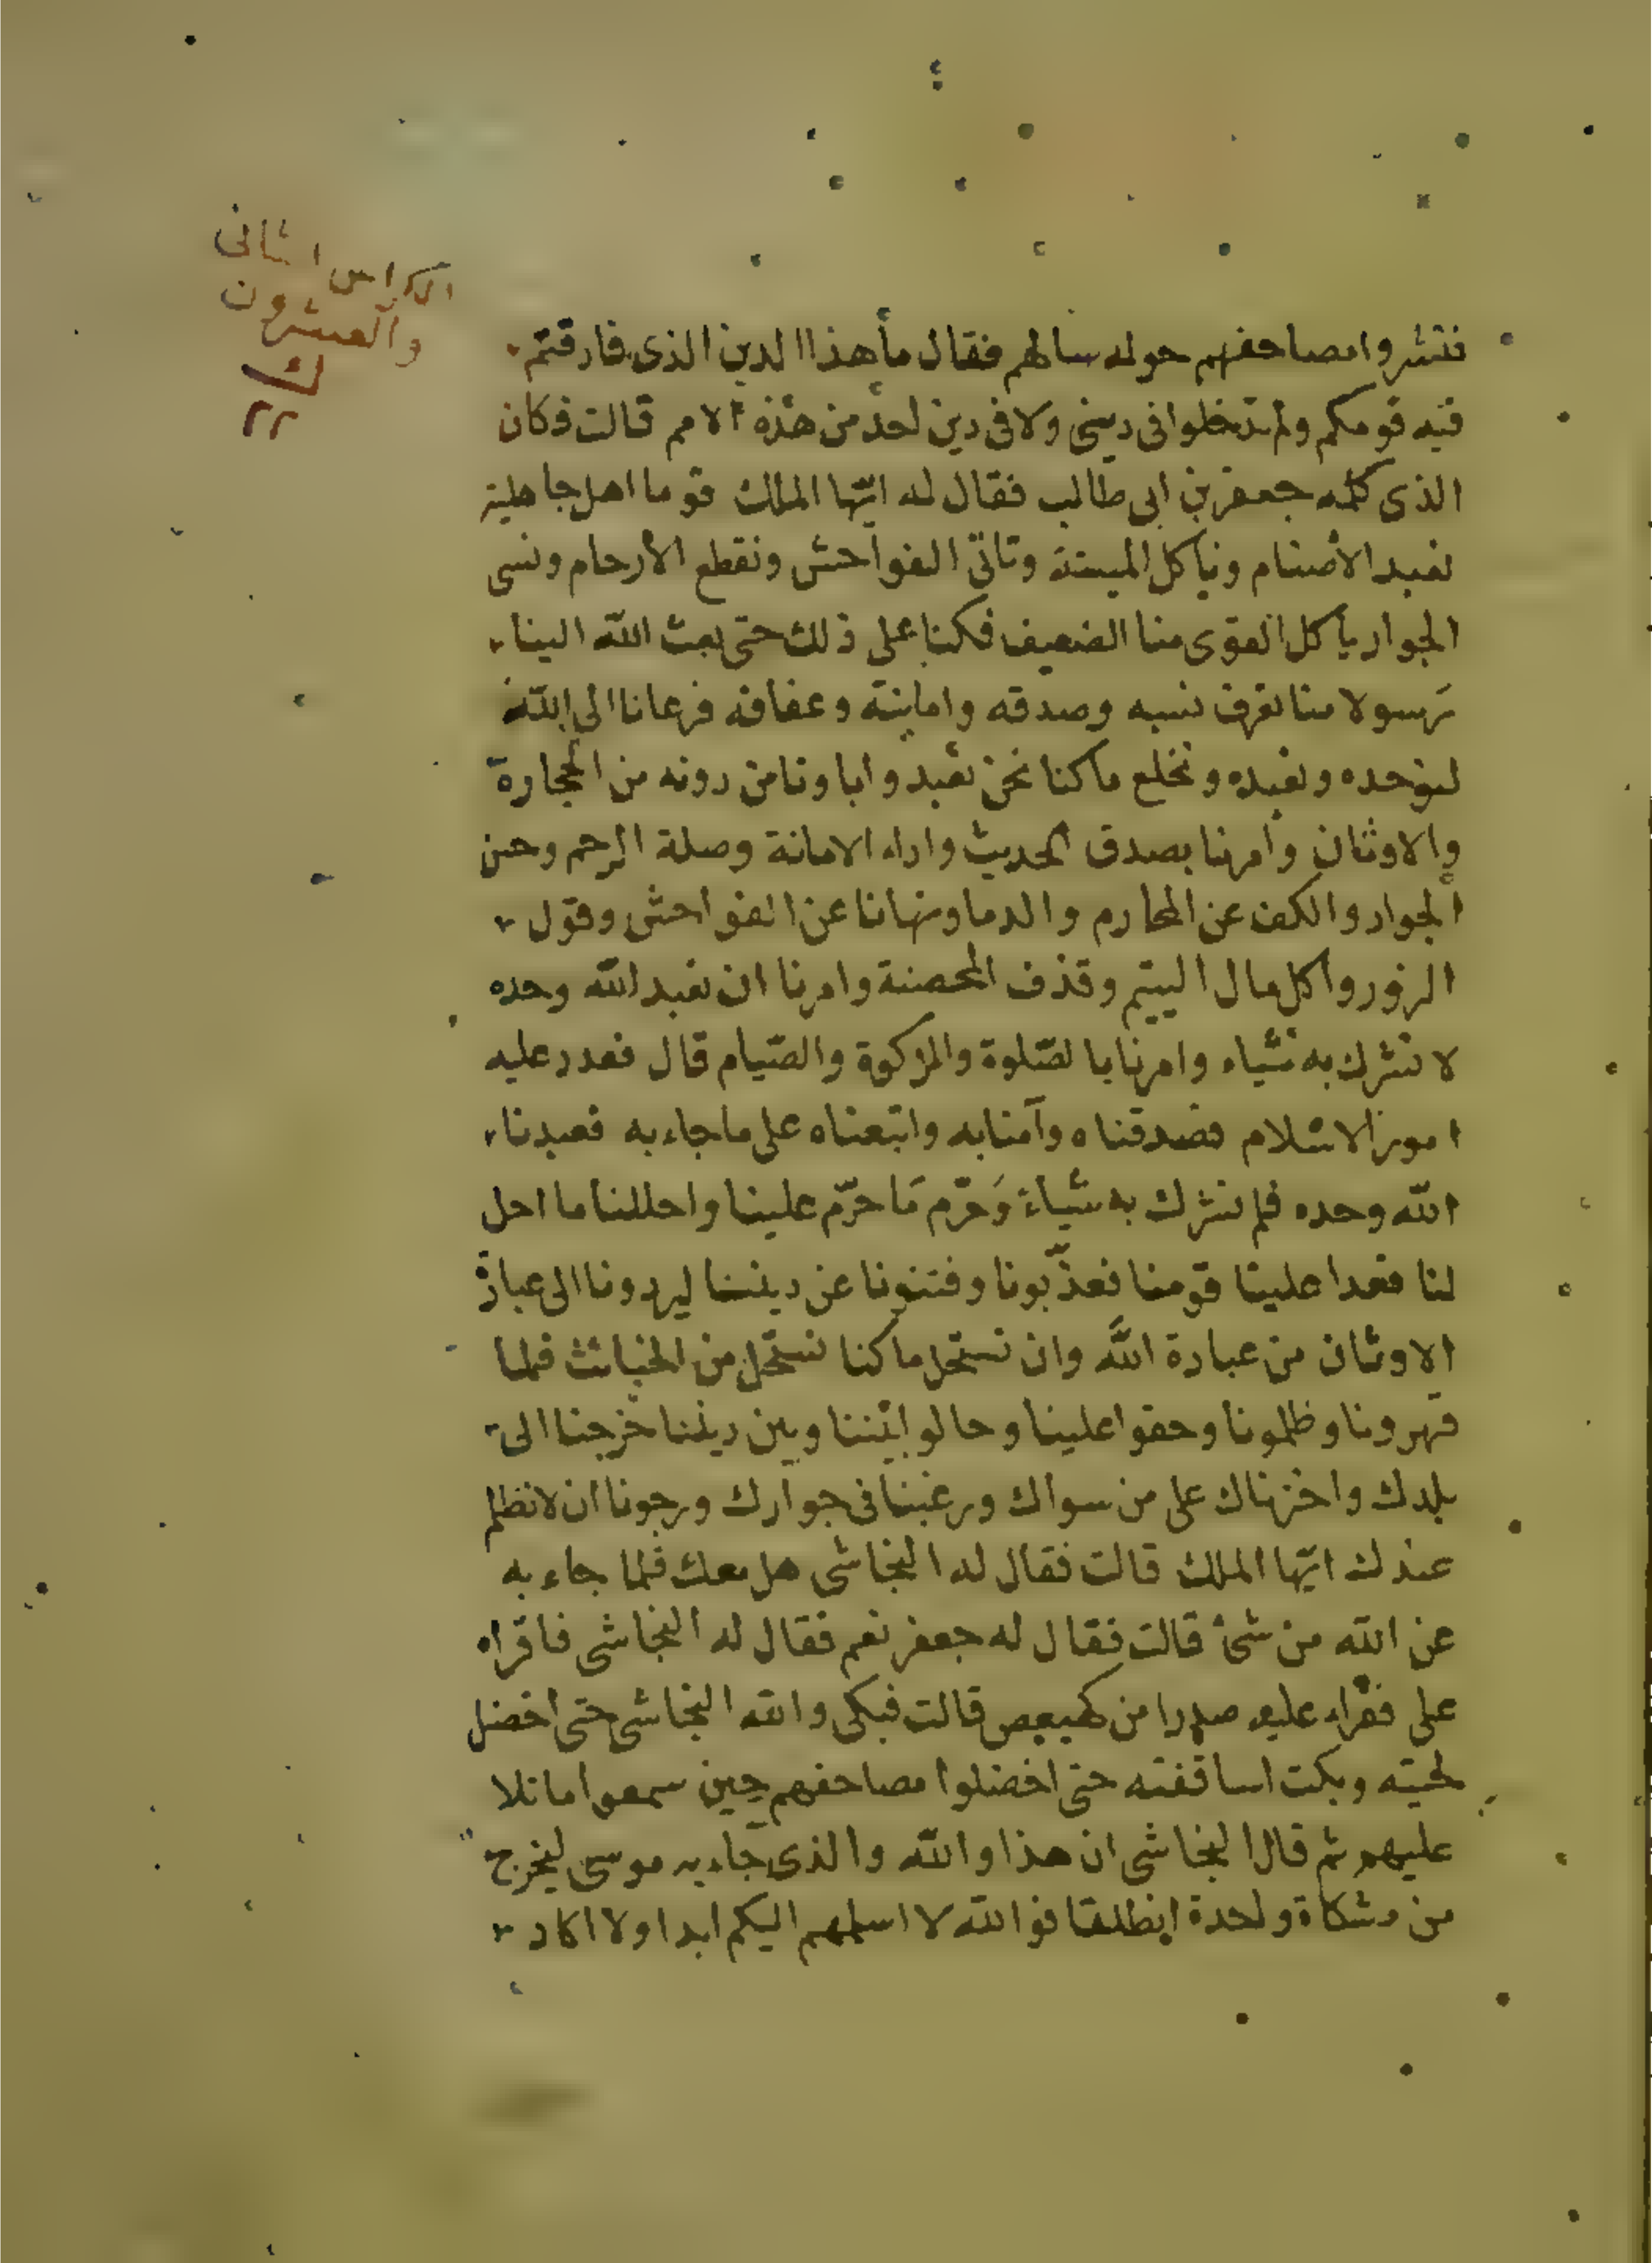 الكراس الثانى
والعشرون
ك
٢٢
فنشروا مصاحفهم حوله سالهم فقال ما هذا الدين الذى فارقتم
فيه قومكم ولم تدخلوا فى دينى ولا فى دين احد من هذه الامم قالت فكان
الذى كلمه جعفر بن ابى طالب فقال له ايّها الملك قوما اهل جاهلية
نعبد الأصنام ونأكل الميتة وتأتى الفواحش ونقطع الأرحام ونسى
الجوار يأكل القوى منا الضعيف فكنا على ذلك حتى بعث الله الينا
رسولا منا نعرف نسبه وصدقه وامانته وعفافه فدعانا الى الله
لنوحده ونعبده ونخلع ما كنا نحن نعبد واباونا من دونه من الحجارة
والاوثان وأمرنا بصدق الحديث واداء الامانة وصلة الرحم وحسن
الجوار والكف عن المحارم والدما ونهانا عن الفواحش وقول
الزور واكل مال اليتيم وقذف المحصنة وامرنا ان نعبد الله وحده
لا نشرك به شياء وامرنا با لصّلوة والزكوة والصّيام قال فعدد عليه
امور الاسلام فصدقناه وآمنا به واتبعناه على ما جاء به فعبدنا
الله وحده فلم نشرك به شياء وَحرّم مَا حرّم علينا واحللنا ما احل
لنا فعدا علينا قومنا فعذّبونا وفتنونا عن ديننا ليردونا الى عبادة
الاوثان من عبادة الله وان نستحل ما كنا نستحل من الخبائث فلما
قهرونا وظلمونا وحقوا علينا وحالوا بيننا وبين ديننا خرجنا الى
بلدك واخترناك على من سواك ورغبنا فى جوارك ورجونا ان لا نظلم
عندك ايّها الملك قالت فقال له النجاشى هل معك فلما جاء به
عن الله من شئ قالت فقال له جعفر نعم فقال له النجاشى فاقراه
على فقراء عليه صدرا من كهيعص قالت فبكى والله النجاشى حتى اخضل
لحيته وبكت اساقفته حتى اخضلوا مصاحفهم حين سمعوا ما تلا
عليهم ثم قال النجاشى ان هذا والله والذى جاء به موسى ليخرج
من مشكاة واحدة انطلقا فوالله لا اسلمهم اليكم ابدا ولا اكاد